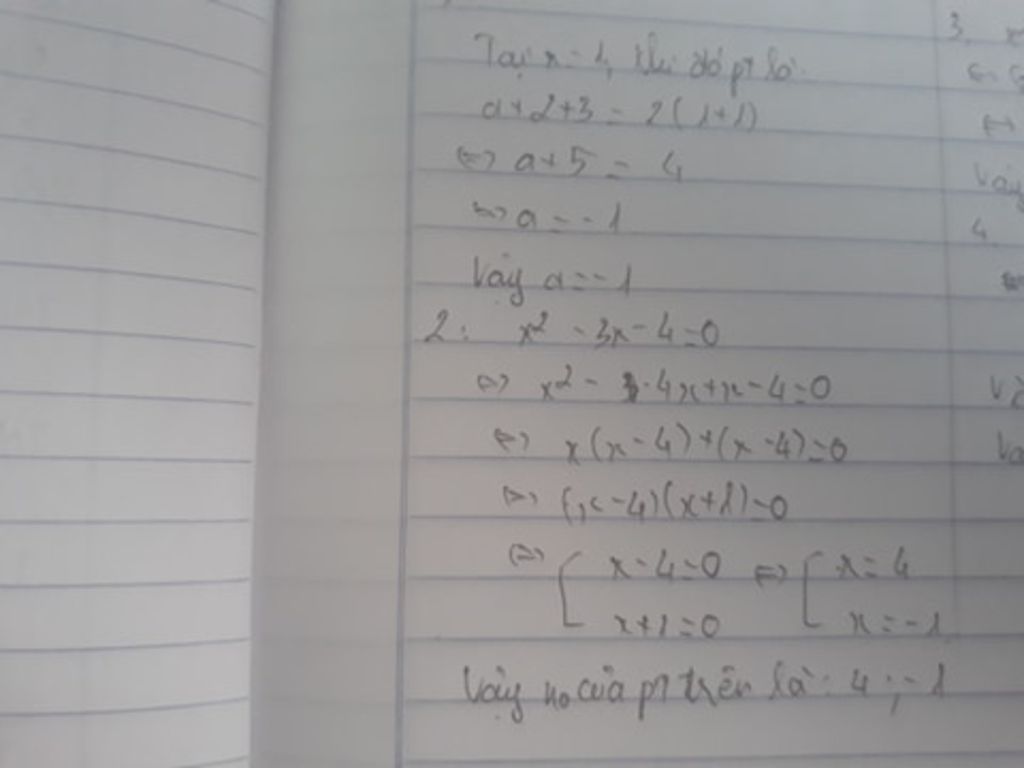 Tại x = 1, khi đó pt là:
a+2+3 = 2(1+1)
⇔ a+5 = 4
⇔ a = -1
Vậy a = -1
2: x² - 3x - 4 = 0
⇔ x² - 4x + x - 4 = 0
⇔ x(x-4) + (x-4) = 0
⇔ (x-4)(x+1) = 0
⇔ [ x-4=0 ⇔ [ x = 4
x+1=0 x = -1
Vậy no của pt trên là: 4; -1
3.
⇔
⇔
Vậy
4.